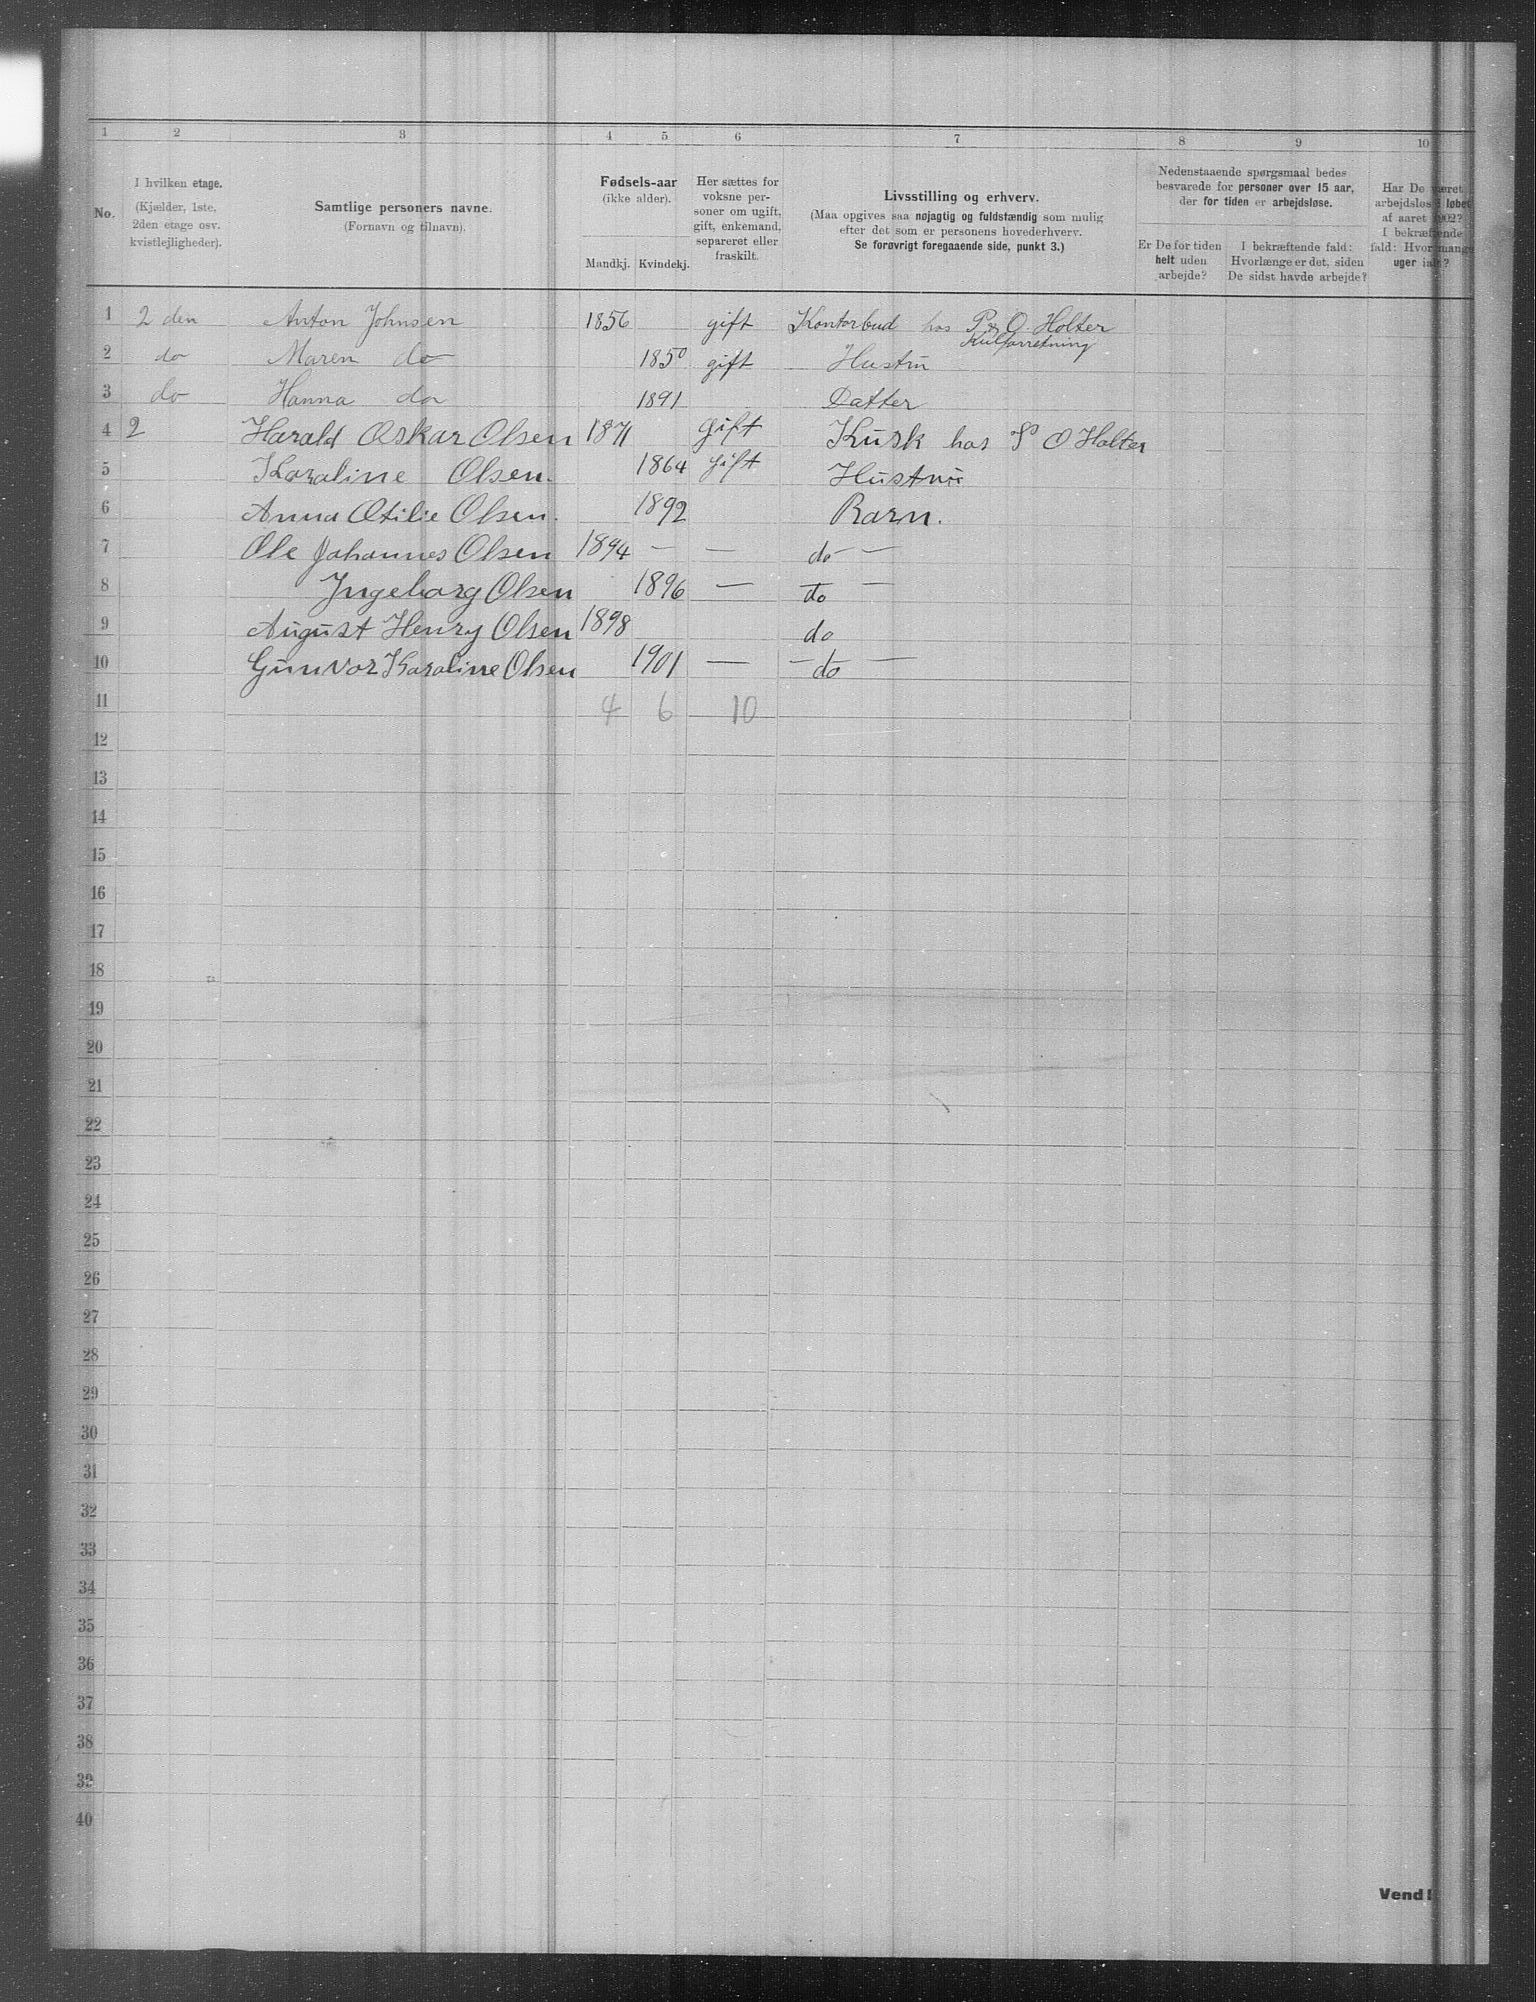 1 2 3 4 5 6 7 8 9 10
No.
I hvilken etage.
(Kjælder, 1ste,
2den etage osv.
kvistlejligheder).
Samtlige personers navne.
(Fornavn og tilnavn).
Fødsels-aar
(ikke alder).
Mandkj. Kvindekj.
Her sættes for
voksne per-
soner om ugift,
gift, enkemand,
separeret eller
fraskilt.
Livsstilling og erhverv.
(Maa opgives saa nøjagtig og fuldstændig som mulig
efter det som er personens hovederhverv.
Se forøvrigt foregaaende side, punkt 3.)
Nedenstaaende spørgsmaal bedes
besvarede for personer over 15 aar,
der for tiden er arbejdsløse.
Er De for tiden
helt uden
arbejde?
I bekræftende fald:
Hvorlænge er det, siden
De sidst havde arbejde?
Har De været
arbejdsløs i løbet
af aaret 1902?
I bekræftende
fald: Hvor mange
uger ialt?
1 2 den Anton Johnsen 1856 gift Kontorbud hos P & O. Holter
Kulforretning
2 do Maren do 1850 gift Hustru
3 do Hanna do 1891 Datter
4 2 Harald Oskar Olsen 1871 Gift Kusk hos P O Holter
5 Karaline Olsen. 1864 gift Hustru
6 Anna Otilie Olsen. 1892 Barn.
7 Ole Johannes Olsen 1894 — — do —
8 Ingeborg Olsen 1896 — do —
9 August Henry Olsen 1898 do
10 Gunvor Karaline Olsen 1901 — — do —
11 4 6 10
12
13
14
15
16
17
18
19
20
21
22
23
24
25
26
27
28
29
30
31
32
33
34
35
36
37
38
39
40
Vend!